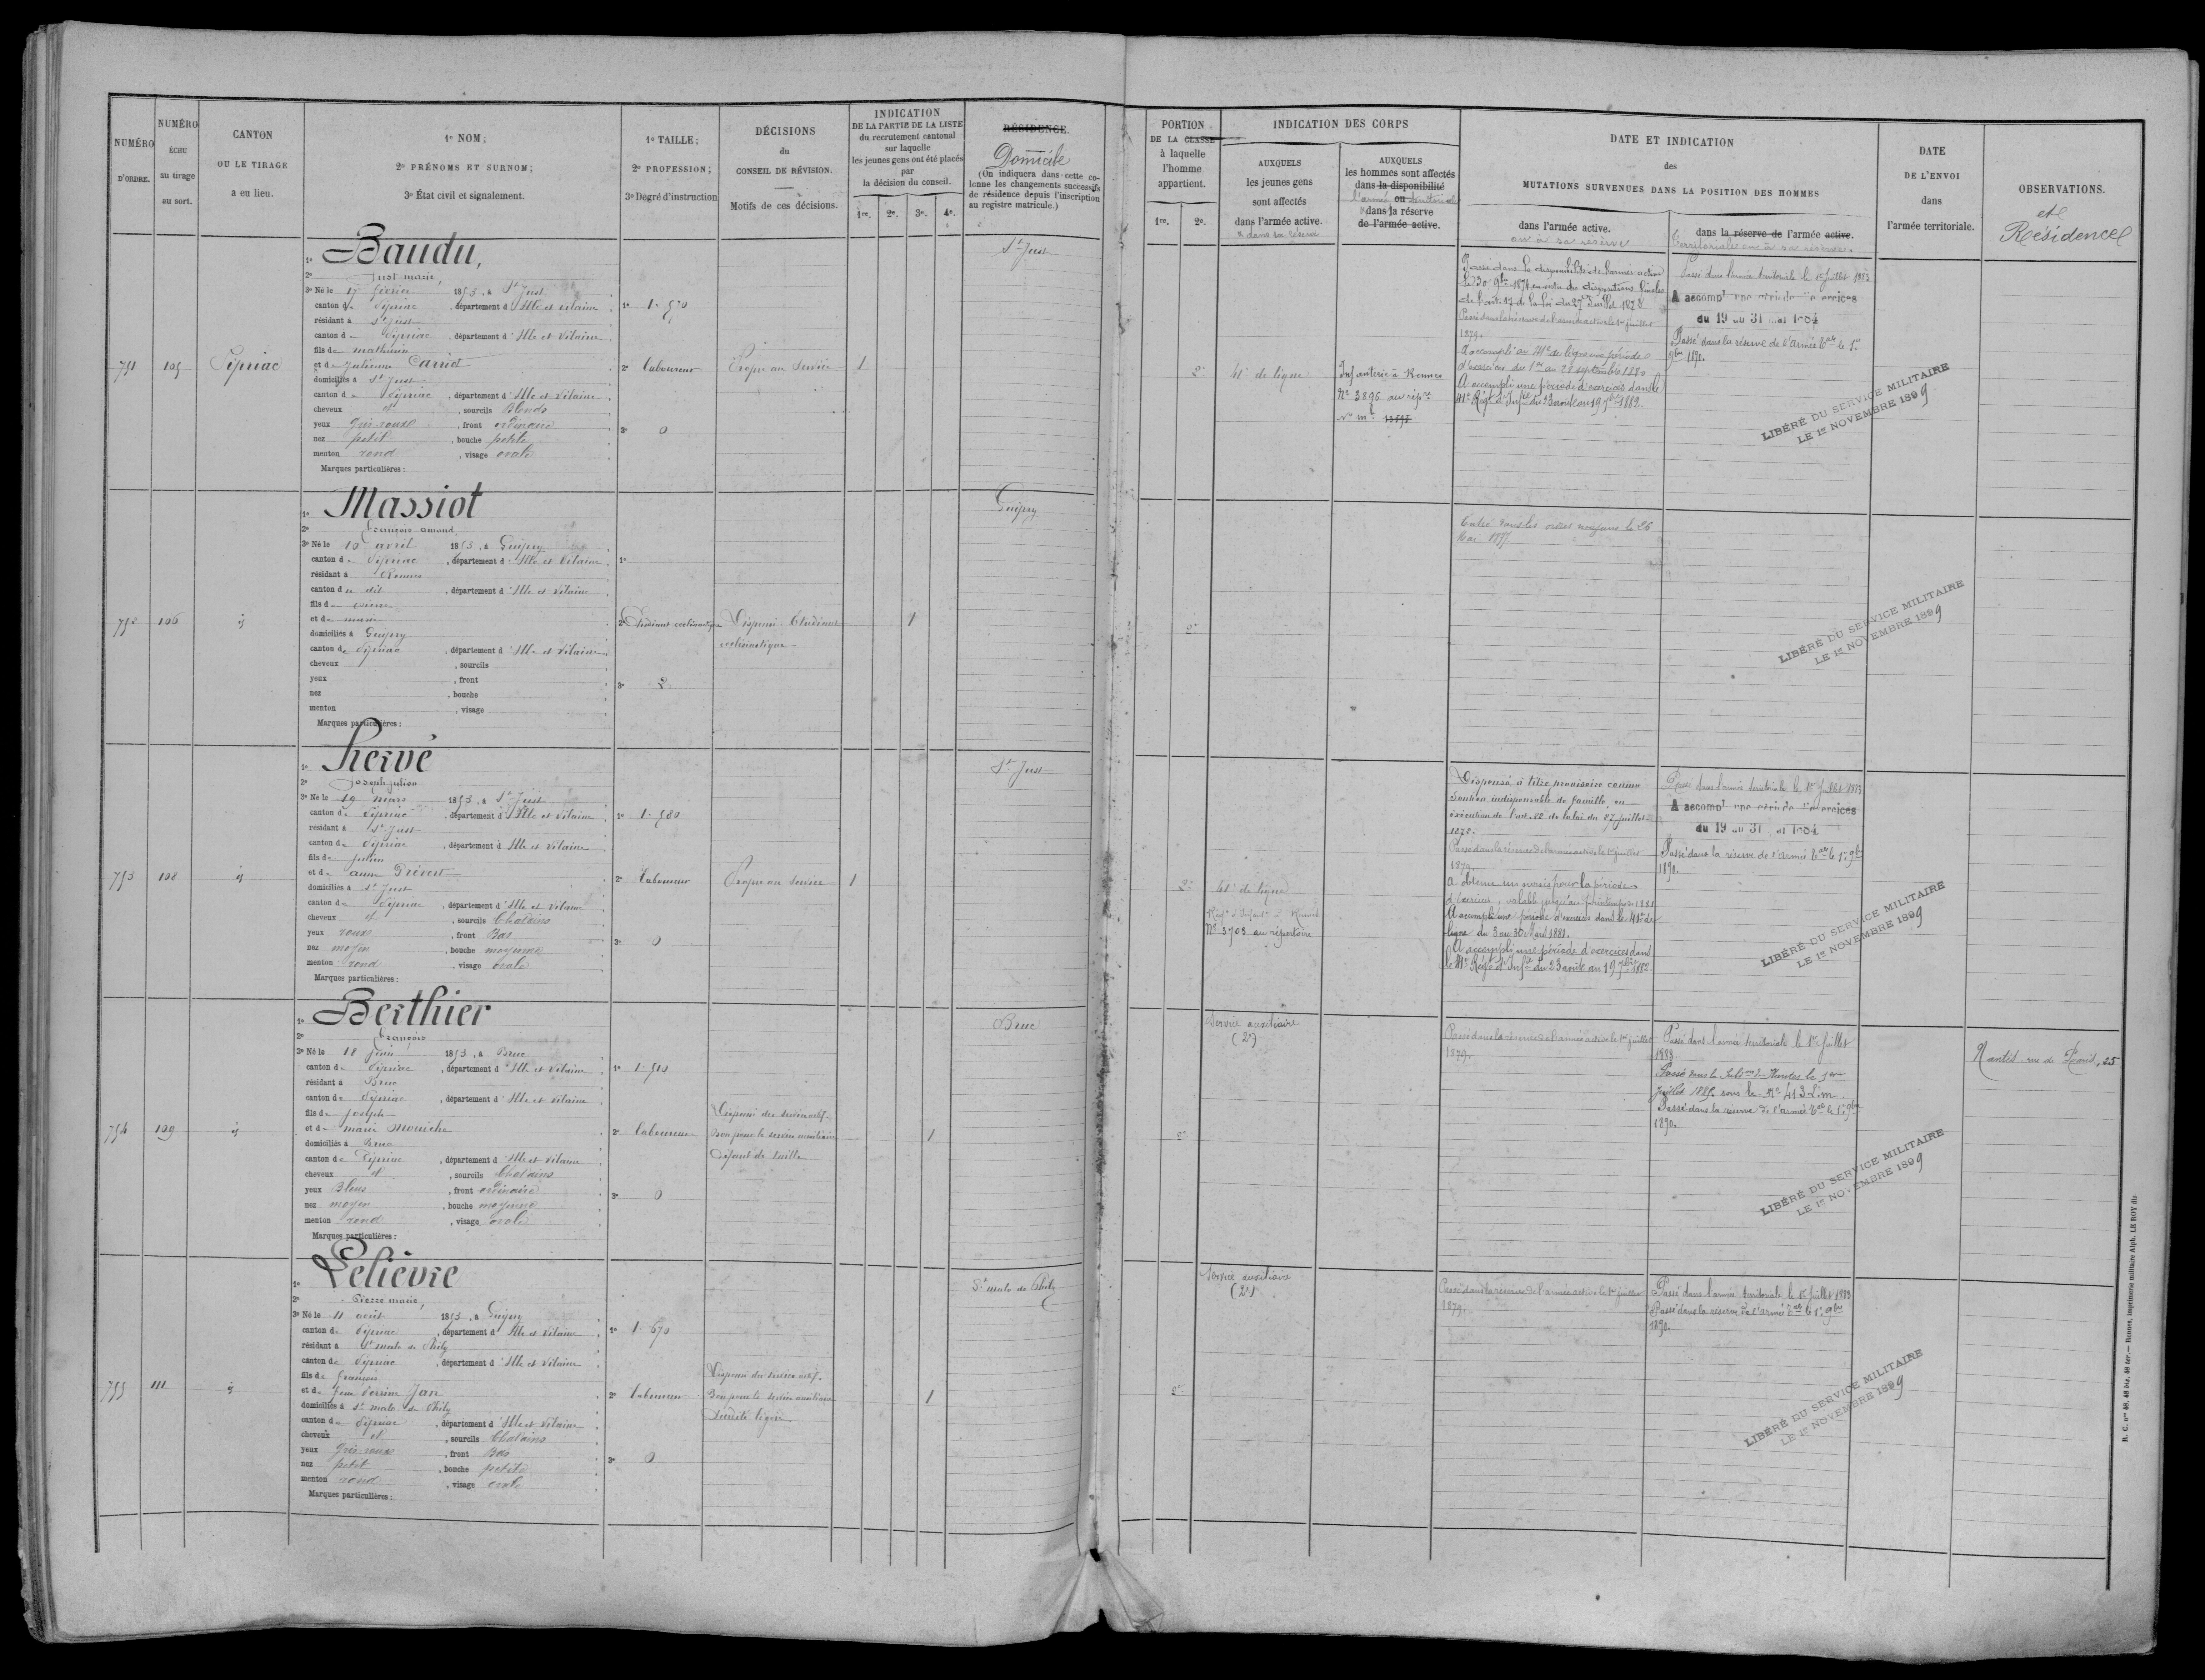 NUMÉRO D'ORDRE.
NUMÉRO ÉCHU au tirage au sort.
CANTON OU LE TIRAGE a eu lieu.
1º NOM;
2º PRÉNOMS ET SURNOM;
3º État civil et signalement.
1º TAILLE;
2º PROFESSION;
3º Degré d'instruction
DÉCISIONS du CONSEIL DE RÉVISION.
Motifs de ces décisions.
INDICATION DE LA PARTIE DE LA LISTE du recrutement cantonal sur laquelle les jeunes gens ont été placés par la décision du conseil.
1re. 2e. 3e. 4e.
RÉSIDENCE.
Domicile
(On indiquera dans cette colonne les changements successifs de résidence depuis l'inscription au registre matricule.)
PORTION DE LA CLASSE à laquelle l'homme appartient.
1re. 2e.
INDICATION DES CORPS
AUXQUELS les jeunes gens sont affectés dans l'armée active.
x dans sa réserve
AUXQUELS les hommes sont affectés dans la disponibilité ou dans la réserve de l'armée active.
l'armée territoriale
DATE ET INDICATION des MUTATIONS SURVENUES DANS LA POSITION DES HOMMES
dans l'armée active.
ou à sa réserve
dans la réserve de l'armée active.
territoriale ou à sa réserve.
DATE DE L'ENVOI dans l'armée territoriale.
OBSERVATIONS.
et Résidence
751
105
Pipriac
1º Baudu,
2º Just marie,
3º Né le 17 février 1853, à St Just
canton de Pipriac, département d'Ille et Vilaine
résidant à St Just
canton de Pipriac, département d'Ille et Vilaine
fils de mathurin
et de Julienne
domiciliés à St Just
canton de Pipriac, département d'Ille et Vilaine
cheveux et, sourcils Blonds
yeux gris-roux, front ordinaire
nez petit, bouche petite
menton rond, visage ovale
Marques particulières:
1º 1.570
2º Laboureur
3º 0
Propre au Service
1
St Just
2e
41e de ligne
Infanterie à Rennes
No 3896 au répre
No me
Passé dans la disponibilité de l'armée active
le 30 9bre 1874 en vertu des dispositions finales
de l'art. 17 de la loi du 27 Juillet 1872
Passé dans la réserve de l'armée active le 1er juillet
1879.
A accompli au 41e de ligne une période
d'exercices du 1er au 28 septembre 1880
A accompli une période d'exercices dans le
41e Régt d'Infie du 23 août au 19 7bre 1882.
Passé dans l'armée territoriale le 1er Juillet 1883
A accompt une période d'exercices
du 19 au 31 mai 1884
Passé dans la réserve de l'Armée tale le 1er
9bre 1890.
LIBÉRÉ DU SERVICE MILITAIRE
LE 1er NOVEMBRE 1899
752
106
id
1º Massiot
2º François amand,
3º Né le 10 avril 1853, à Guipry
canton de Pipriac, département d'Ille et Vilaine
résidant à Rennes
canton de dit, département d'Ille et Vilaine
fils de pierre
et de marie
domiciliés à Guipry
canton de Pipriac, département d'Ille et Vilaine
cheveux, sourcils
yeux, front
nez, bouche
menton, visage
Marques particulières:
1º
2º Etudiant ecclésiastique
3º 2
Dispensé Etudiant
ecclésiastique
1
Guipry
2e
Entré dans les ordres majeurs le 26
Mai 1877
LIBÉRÉ DU SERVICE MILITAIRE
LE 1er NOVEMBRE 1899
753
108
id
1º Hervé
2º Joseph julien
3º Né le 19 mars 1853, à St Just
canton de Pipriac, département d'Ille et Vilaine
résidant à St Just
canton de Pipriac, département d'Ille et Vilaine
fils de Julien
et de anne Prévert
domiciliés à St Just
canton de Pipriac, département d'Ille et Vilaine
cheveux et, sourcils Chatains
yeux roux, front Bas
nez moyen, bouche moyenne
menton rond, visage ovale
Marques particulières:
1º 1.580
2º Laboureur
3º 0
Propre au Service
1
St Just
2e
41e de ligne
Régt d'Infanie à Rennes
No 3703 au répertoire
Dispensé à titre provisoire comme
soutien indispensable de famille en
exécution de l'art. 22 de la loi du 27 juillet
1872.
Passé dans la réserve de l'armée active le 1er juillet
1879.
A obtenu un sursis pour la période
d'exercices, valable jusqu'au printemps 1881
A accompli une période d'exercices dans le 41e de
ligne du 3 au 30 Mars 1881.
A accompli une période d'exercices dans
le 41e Régt d'Infie du 23 août au 19 7bre 1882.
Passé dans l'armée territoriale le 1er Juillet 1883
A accompt une période d'exercices
du 19 au 31 mai 1884
Passé dans la réserve de l'Armée tale le 1er 9bre
1890.
LIBÉRÉ DU SERVICE MILITAIRE
LE 1er NOVEMBRE 1899
754
109
id
1º Berthier
2º François
3º Né le 18 juin 1853, à Bruc
canton de Pipriac, département d'Ille et Vilaine
résidant à Bruc
canton de Pipriac, département d'Ille et Vilaine
fils de Joseph
et de marie Mouiche
domiciliés à Bruc
canton de Pipriac, département d'Ille et Vilaine
cheveux et, sourcils Chatains
yeux Bleus, front ordinaire
nez moyen, bouche moyenne
menton rond, visage ovale
Marques particulières:
1º 1.510
2º Laboureur
3º 0
Dispensé du service actif.
Bon pour le service auxiliaire
Défaut de taille
1
Bruc
2e
Service auxiliaire
(2e)
Passé dans la réserve de l'armée active le 1er juillet
1879.
Passé dans l'armée territoriale le 1er Juillet
1883
Passé dans la Subon de Nantes le 1er
juillet 1889 sous le No 413 L.m.
Passé dans la réserve de l'armée tale le 1er 9bre
1890.
LIBÉRÉ DU SERVICE MILITAIRE
LE 1er NOVEMBRE 1899
755
111
id
1º Lelievre
2º Pierre marie,
3º Né le 11 août 1853, à Guipry
canton de Pipriac, département d'Ille et Vilaine
résidant à St malo de Phily
canton de Pipriac, département d'Ille et Vilaine
fils de François
et de Jeanne Perrine Jan
domiciliés à St malo de Phily
canton de Pipriac, département d'Ille et Vilaine
cheveux et, sourcils Chatains
yeux gris-roux, front Bas
nez petit, bouche petite
menton rond, visage ovale
Marques particulières:
1º 1.670
2º Laboureur
3º 0
Dispensé du service actif.
Bon pour le service auxiliaire
Surdité légère.
1
St malo de Phily
2e
Service auxiliaire
(2e)
Passé dans la réserve de l'armée active le 1er juillet
1879.
Passé dans l'armée territoriale le 1er Juillet 1883
Passé dans la réserve de l'Armée tale le 1er 9bre
1890.
LIBÉRÉ DU SERVICE MILITAIRE
LE 1er NOVEMBRE 1899